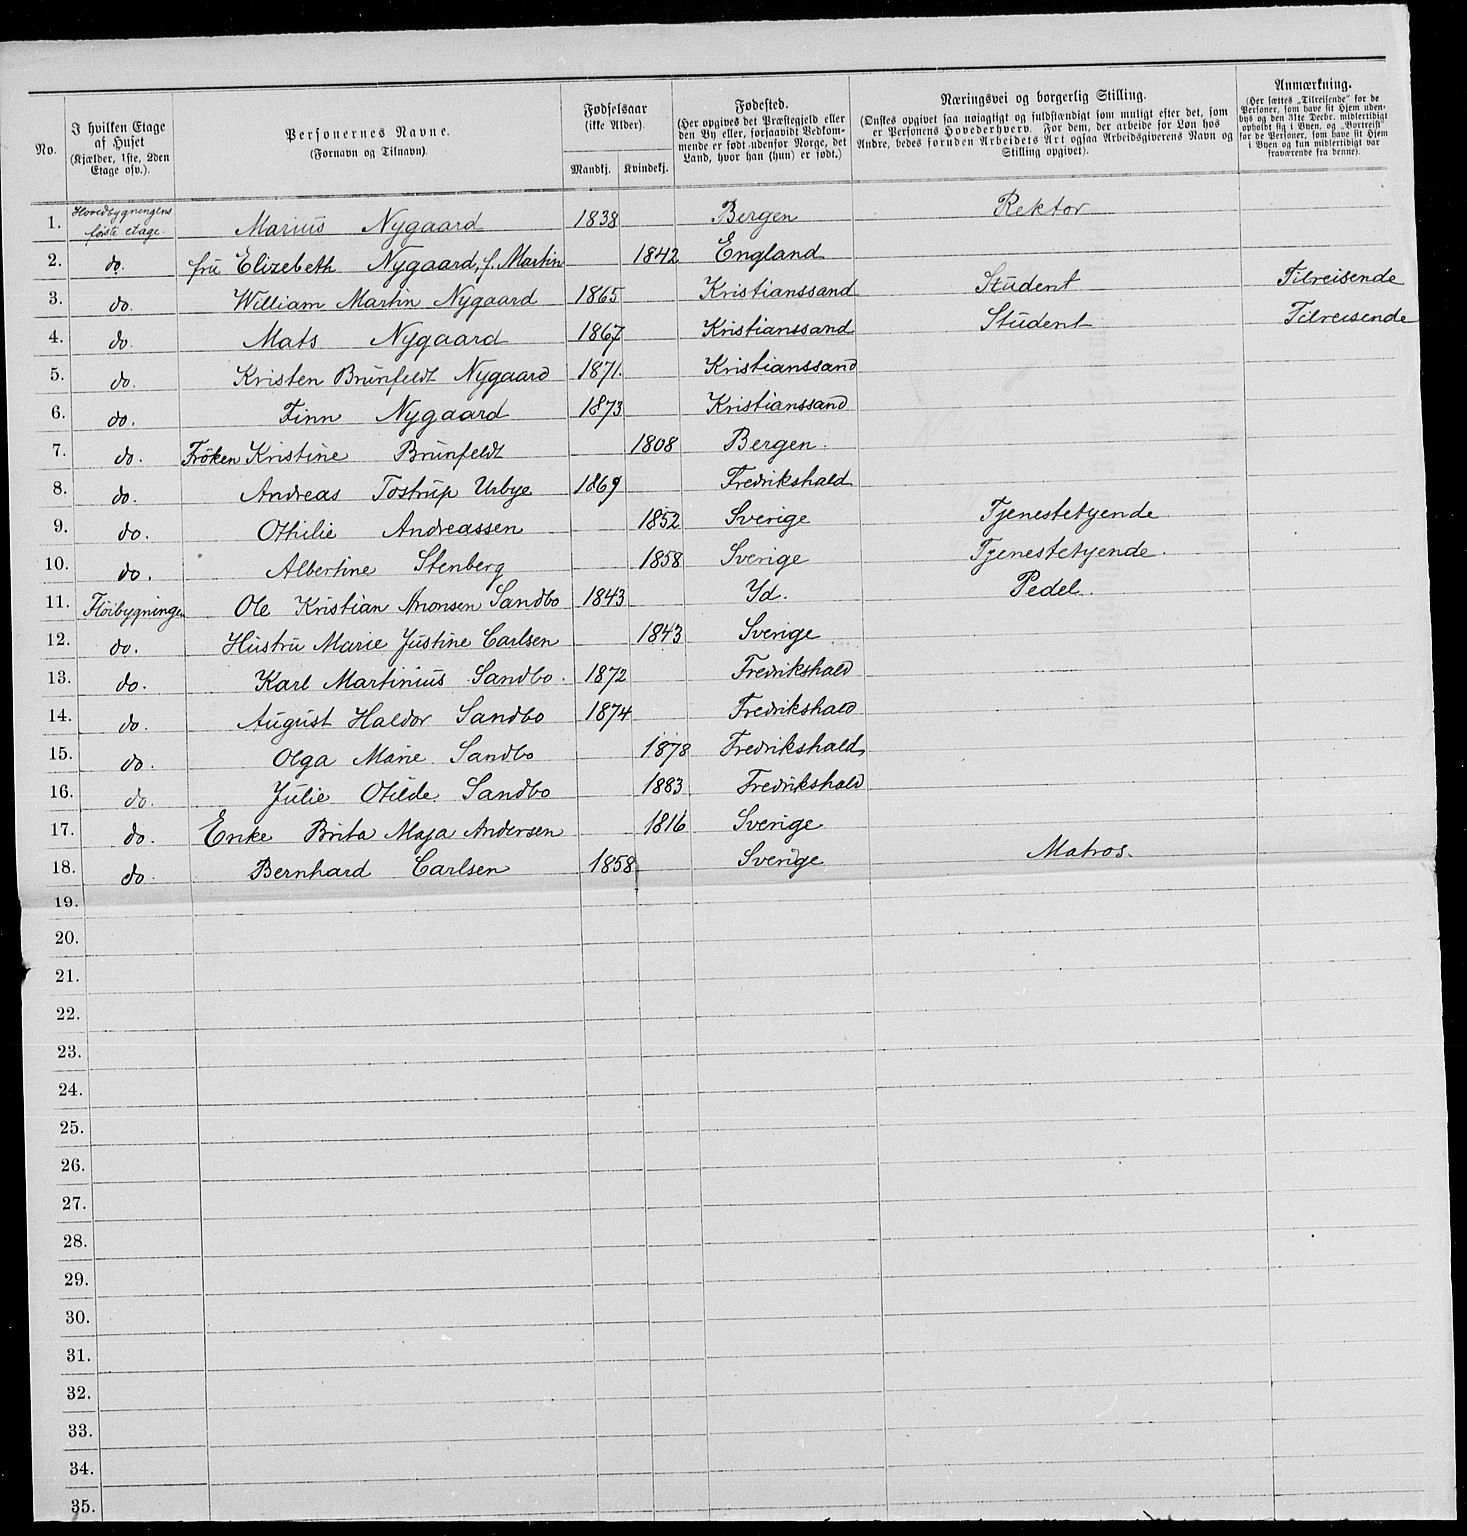 No.
I hvilken Etage
af Huset
(Kjælder, 1ste, 2den
Etage osv.).
Personernes Navne.
(Fornavn og Tilnavn).
Fødselsaar
(ikke Alder).
Mandkj. Kvindekj.
Fødested.
(Her opgives det Præstegjeld eller
den By eller, forsaavidt Vedkom-
mende er født udenfor Norge, det
Land, hvor han (hun) er født.)
Næringsvei og borgerlig Stilling.
(Ønskes opgivet saa nøiagtigt og fuldstændigt som muligt efter det, som
er Personens Hovederhverv. For dem, der arbeide for Løn hos
Andre, bedes foruden Arbeidets Art ogsaa Arbeidsgiverens Navn og
Stilling opgivet).
Anmærkning.
(Her sættes „Tilreisende" for de
Personer, som have sit Hjem uden-
bys og den 31te Decbr. midlertidigt
opholdt sig i Byen, og „Bortreist"
for de Personer, som have sit Hjem
i Byen og kun midlertidigt var
fraværende fra denne).
1. Hovedbygningens første etage. Marius Nygaard 1838 Bergen Rektor
2. do. fru Elizebeth Nygaard, f. Martin 1842 England
3. do. William Martin Nygaard 1865 Kristianssand Student Tilreisende
4. do. Mats Nygaard 1867 Kristianssand Student Tilreisende
5. do. Kristen Brunfeldt Nygaard 1871. Kristianssand
6. do. Finn Nygaard 1873 Kristianssand
7. do. Frøken Kristine Brunfeldt 1808 Bergen.
8. do. Andreas Tostrup Urbye 1869 Fredrikshald
9. do. Othilie Andreassen 1852 Sverige Tjenestetyende
10. do. Albertine Stenberg 1858 Sverige Tjenestetyende.
11. Fløibygningen Ole Kristian Aronsen Sandbo 1843 Yd. Pedel.
12. do. Hustru Marie Justine Carlsen 1843 Sverige
13. do. Karl Martinius Sandbo. 1872 Fredrikshald
14. do. August Haldor Sandbo 1874 Fredrikshald
15. do. Olga Marie Sandbo 1878 Fredrikshald
16. do. Julie Otilde Sandbo 1883 Fredrikshald
17. do. Enke Brita Maja Andersen 1816 Sverige
18. do Bernhard Carlsen 1858 Sverige Matros.
19.
20.
21.
22.
23.
24.
25.
26.
27.
28.
29.
30.
31.
32.
33.
34.
35.